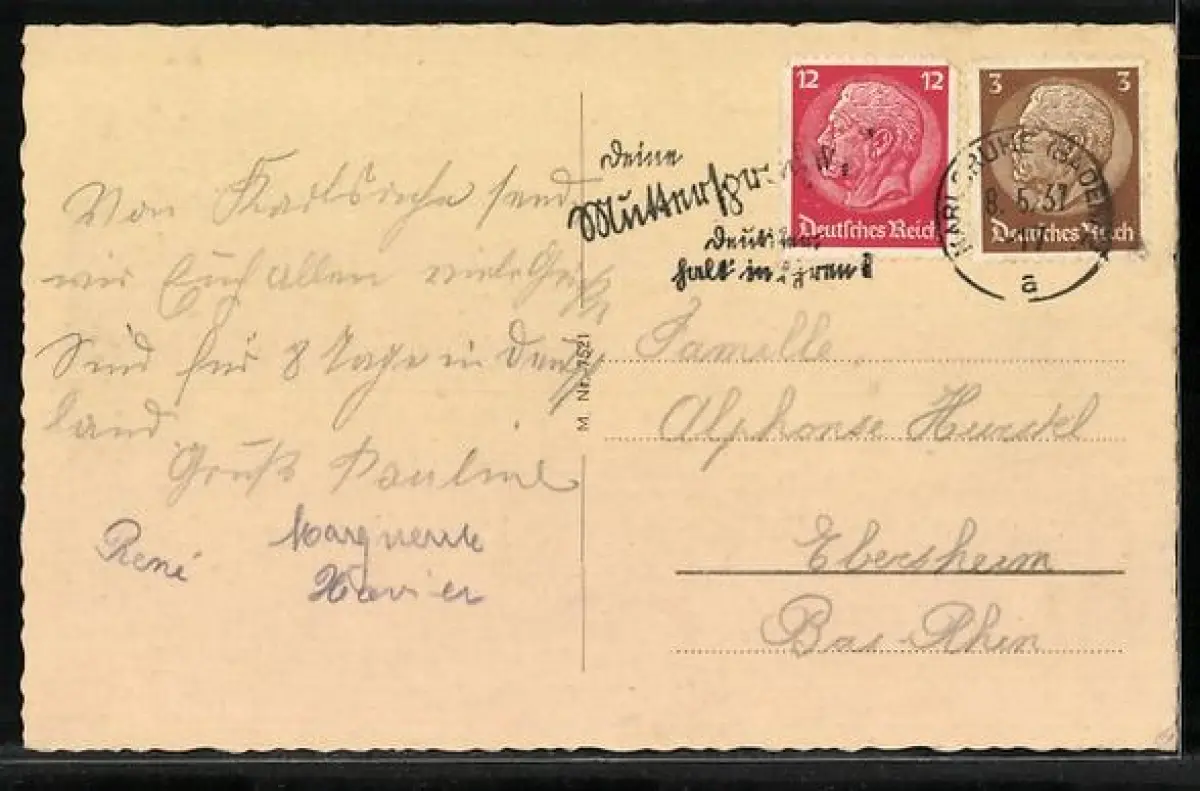 Von Karlsruhe send
wir Euch allen viele Grüß
Sind für 8 Tage in Deutsch
land
Gruß Pauline
René
Marguerite
Xavier
M. Nr. 7521
Deine
Muttersprache
Deutscher
halt in Ehren!
12 12
Deutsches Reich
3 3
Deutsches Reich
KARLSRUHE (BADEN)
8.5.37
a
Famille
Alphonse
Ebersheim
Bas-Rhin